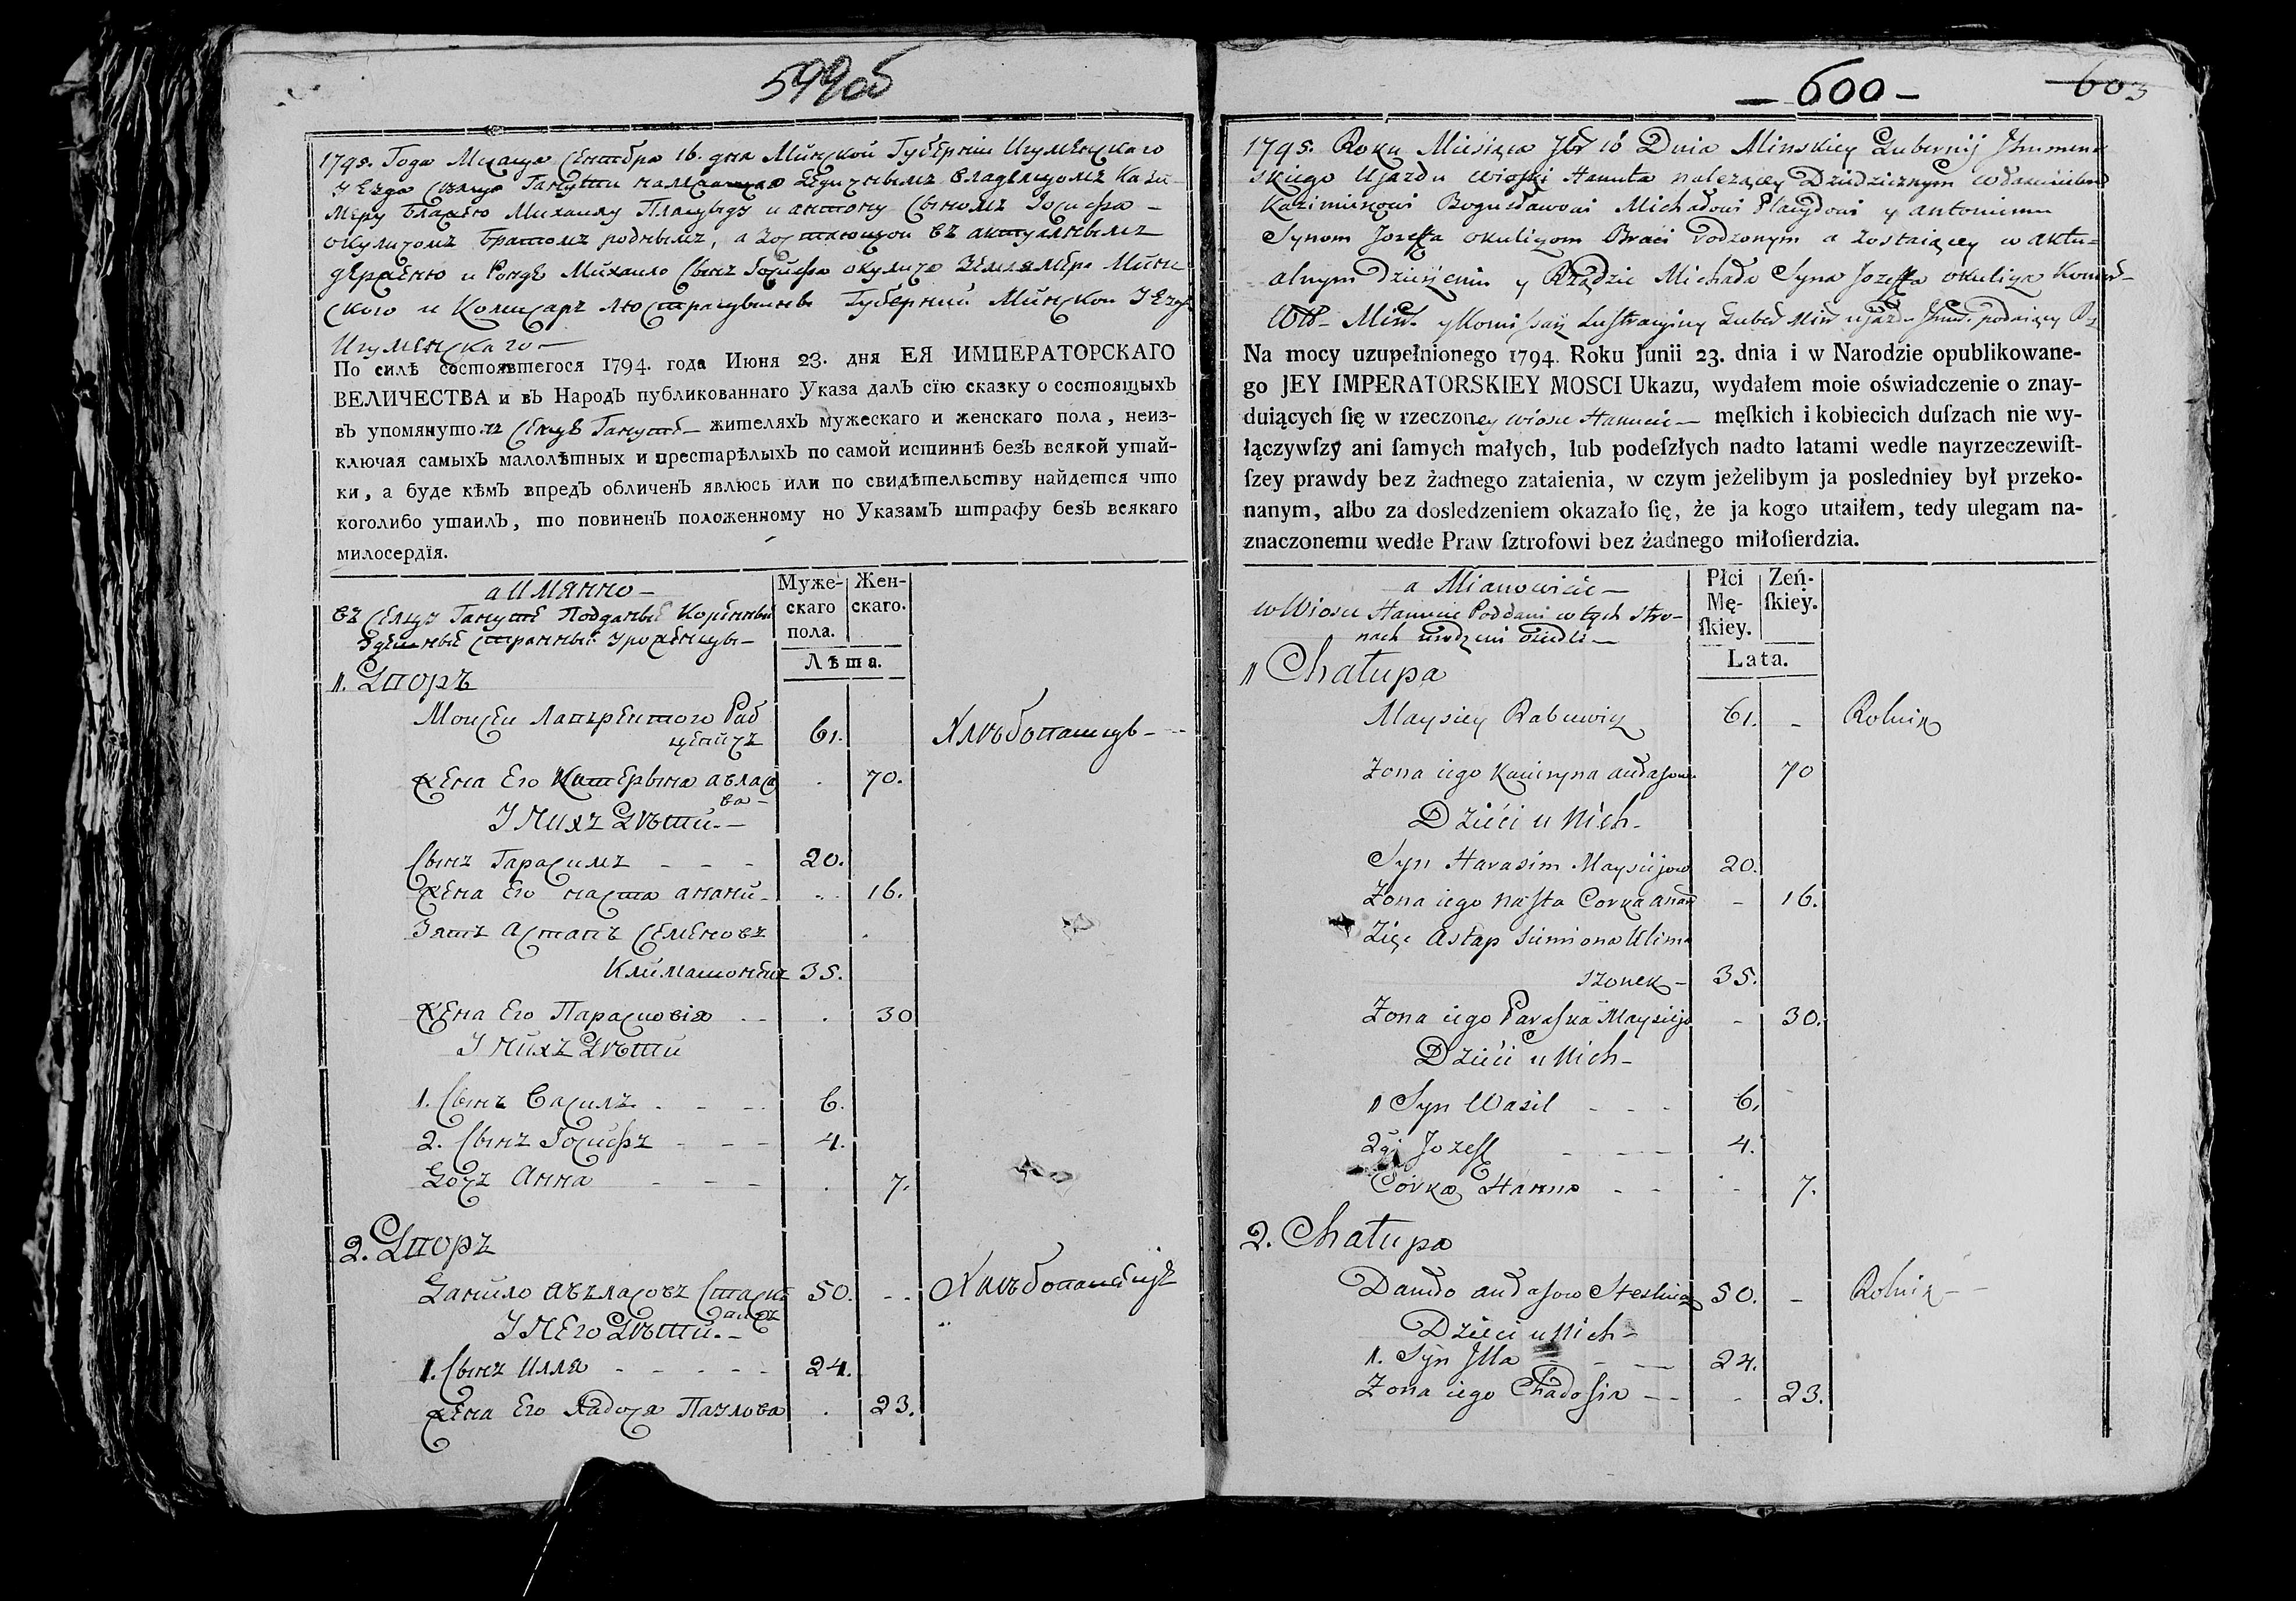 599об
1795. Года Месяца Сентебра 16. дня Минской Губерніи Игуменскаго
Уезда Селца Гануты належащаго Дедичнымъ Владелцомъ Кази-
меру Михаилу Плацыду и Антону Сыномъ Іосифа -
Окуличомъ Братомъ роднымъ, а Зостаюшой въ актуалнымъ
держеню и Рондѣ Михаило Сынъ Іосифа Окулича Минс
ского и Комисаръ Люстрацыйный Губерніи Минской Уезду
Игуменскаго -
По силѣ состоявшегося 1794. года Июня 23. дня ЕЯ ИМПЕРАТОРСКАГО
ВЕЛИЧЕСТВА и въ Народъ публикованнаго Указа далъ сїю сказку о состоящыхъ
въ упомянутомъ Селцѣ Ганутѣ - жителяхъ мужескаго и женскаго пола, неиз-
ключая самыхъ малолѣтныхъ и престарѣлыхъ по самой истиннѣ безъ всякой утай-
ки, а буде кѣмъ впредъ обличенъ явлюсь или по свидѣтельству найдется что
коголибо утаилъ, то повиненъ положенному по Указамъ штрафу безъ всякаго
милосердїя.
а Имянно -
Муже- скаго пола.
Жен- скаго.
въ Селцѣ Ганутѣ Подданые Коренные
Здешные Странные Уроженцы -
Лѣта.
1. Дворъ
Моисей Раб
цевичъ 61. Хлѣбопашцъ -
Жена Его Катерына Авласо
ва - 70.
У Нихъ Дѣти. -
Сынъ Гарасимъ - - - 20.
Жена Его Наста Анани - 16.
Зять Астапъ Семеновъ
Климашонокъ 35.
Жена Его Парасковія - - 30
У Нихъ Дѣти
1. Сынъ Василъ - - - 6.
2. Сынъ Іосифъ - - - 4.
Дочъ Анна - - - 7.
2. Дворъ
Данило Авъласовъ 50. - - Хлѣбопашецъ
У Него Дѣти. -
1. Сынъ Илля - - - - - 24.
Жена Его Хадося Павлова 23.
- 600 -
603
1795. Roku Miesiąca 7br 16 Dnia Minskiey Gubernij Ihumens
skiego Ujazdu wioski Hanuta należącey Dziedzicznym Właścicielom
Kazimirzowi Bogusławowi Michałowi Placydowi y Antoniemu
Synom Jozeffa Okuliczom Braci rodzonym a Zostaiącey w aktu=
alnym Dzierżeniu y Rządzie Michała Syna Jozeffa Okulicza Komor-
Wd- Mińs. y Komissarz Lustracyiny Guber Miń ujazdu Ihum. podaiący
Na mocy uzupełnionego 1794. Roku Junii 23. dnia i w Narodzie opublikowane-
go JEY IMPERATORSKIEY MOSCI Ukazu, wydałem moie oświadczenie o znay-
duiących ſię w rzeczoney wiosce Hanucie - męſkich i kobiecich duſzach nie wy-
łączywſzy ani ſamych małych, lub podeſzłych nadto latami wedle nayrzeczewiſt-
ſzey prawdy bez żadnego zataienia, w czym jeżelibym ja posledniey był przeko-
nanym, albo za dosledzeniem okazało ſię, że ja kogo utaiłem, tedy ulegam na-
znaczonemu wedłe Praw ſztrofowi bez żadnego miłoſierdzia.
a Mianowicie -
Płci Mę- ſkiey.
Zeń- ſkiey.
w Wiosce Hanucie Poddani w tych stro-
nach urodzeni osiedli -
Lata.
1 Chałupa
Maysiey Rabcewicz 61. - Rolnik
Zona iego Kacieryna Aułasow. 70
Dzieci u Nich -
Syn Harasim Maysiejow 20.
Zona iego Nasta Corka Anan - 16.
Zięć Astap Siemiona Klima
szonek - 35.
Zona iego Paraska Maysiejo - 30.
Dzieci u Nich -
1 Syn Wasil - - - 6.
2gi Jozeff - - - 4.
Corka Hanna - - 7.
2. Chałupa
Daniło Aułasow 50. - Rolnik -
Dzieci u Nich -
1. Syn Illa - - 24.
Zona iego Chadosia - - 23.